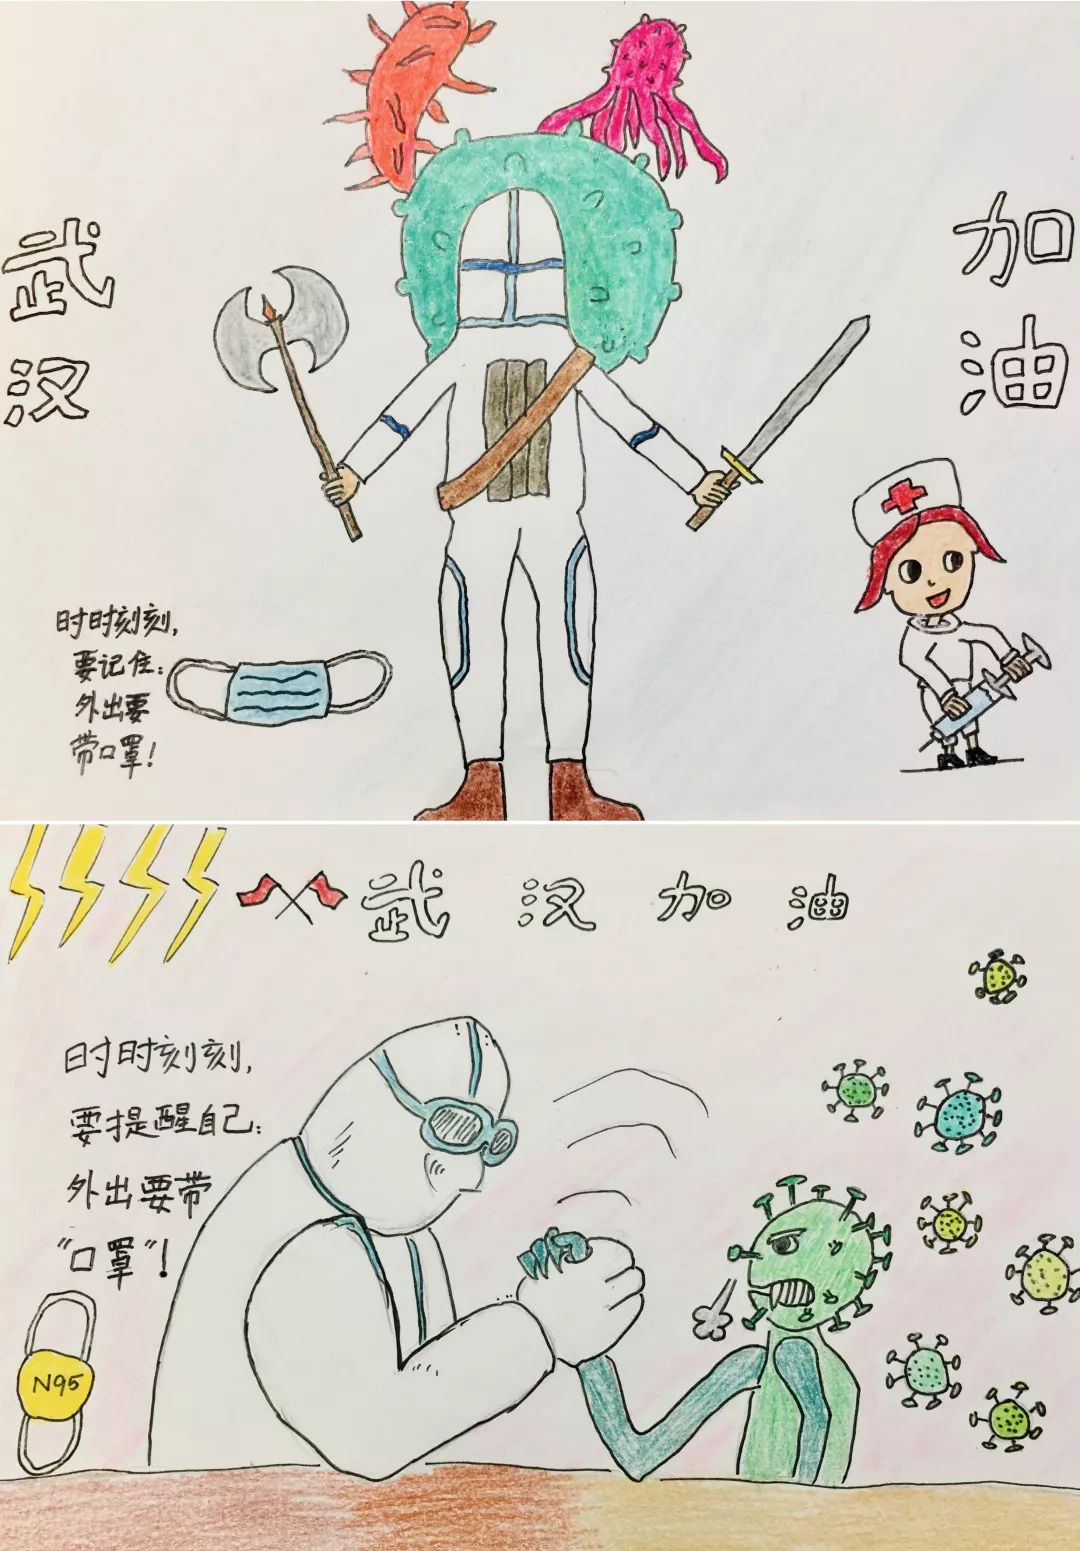 武汉
加油
时时刻刻,
要记住:
外出要
带口罩!
武汉加油
时时刻刻,
要提醒自己:
外出要带
"口罩"!
N95